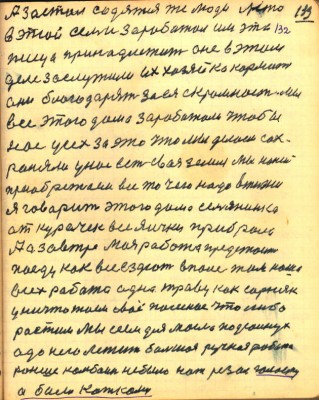 А за стол садятся те люди кто 139
в этой семи заработал им эта 132
пища принадлежит оне в этом
деле заслужили их хозяйка кормит
ани благодарят за ея скромност мы
все этого дома заработали чтобы
нас усех за это что мы делаем сох-
раняли у нас ест свая земля мы
приобретаем все то чего надо в жизни
Я говарит этого дома семянинка
от курачек все яички прибрала
А на завтре моя работа предстоит
поеду как все ездют в поле там наша
всех работа одна траву как сарняк
уничтожаем своё посеяное что либо
растим мы сеем для маленьких
а до него летит большая ручная работа
ранще комбаина небыло
а были каткому